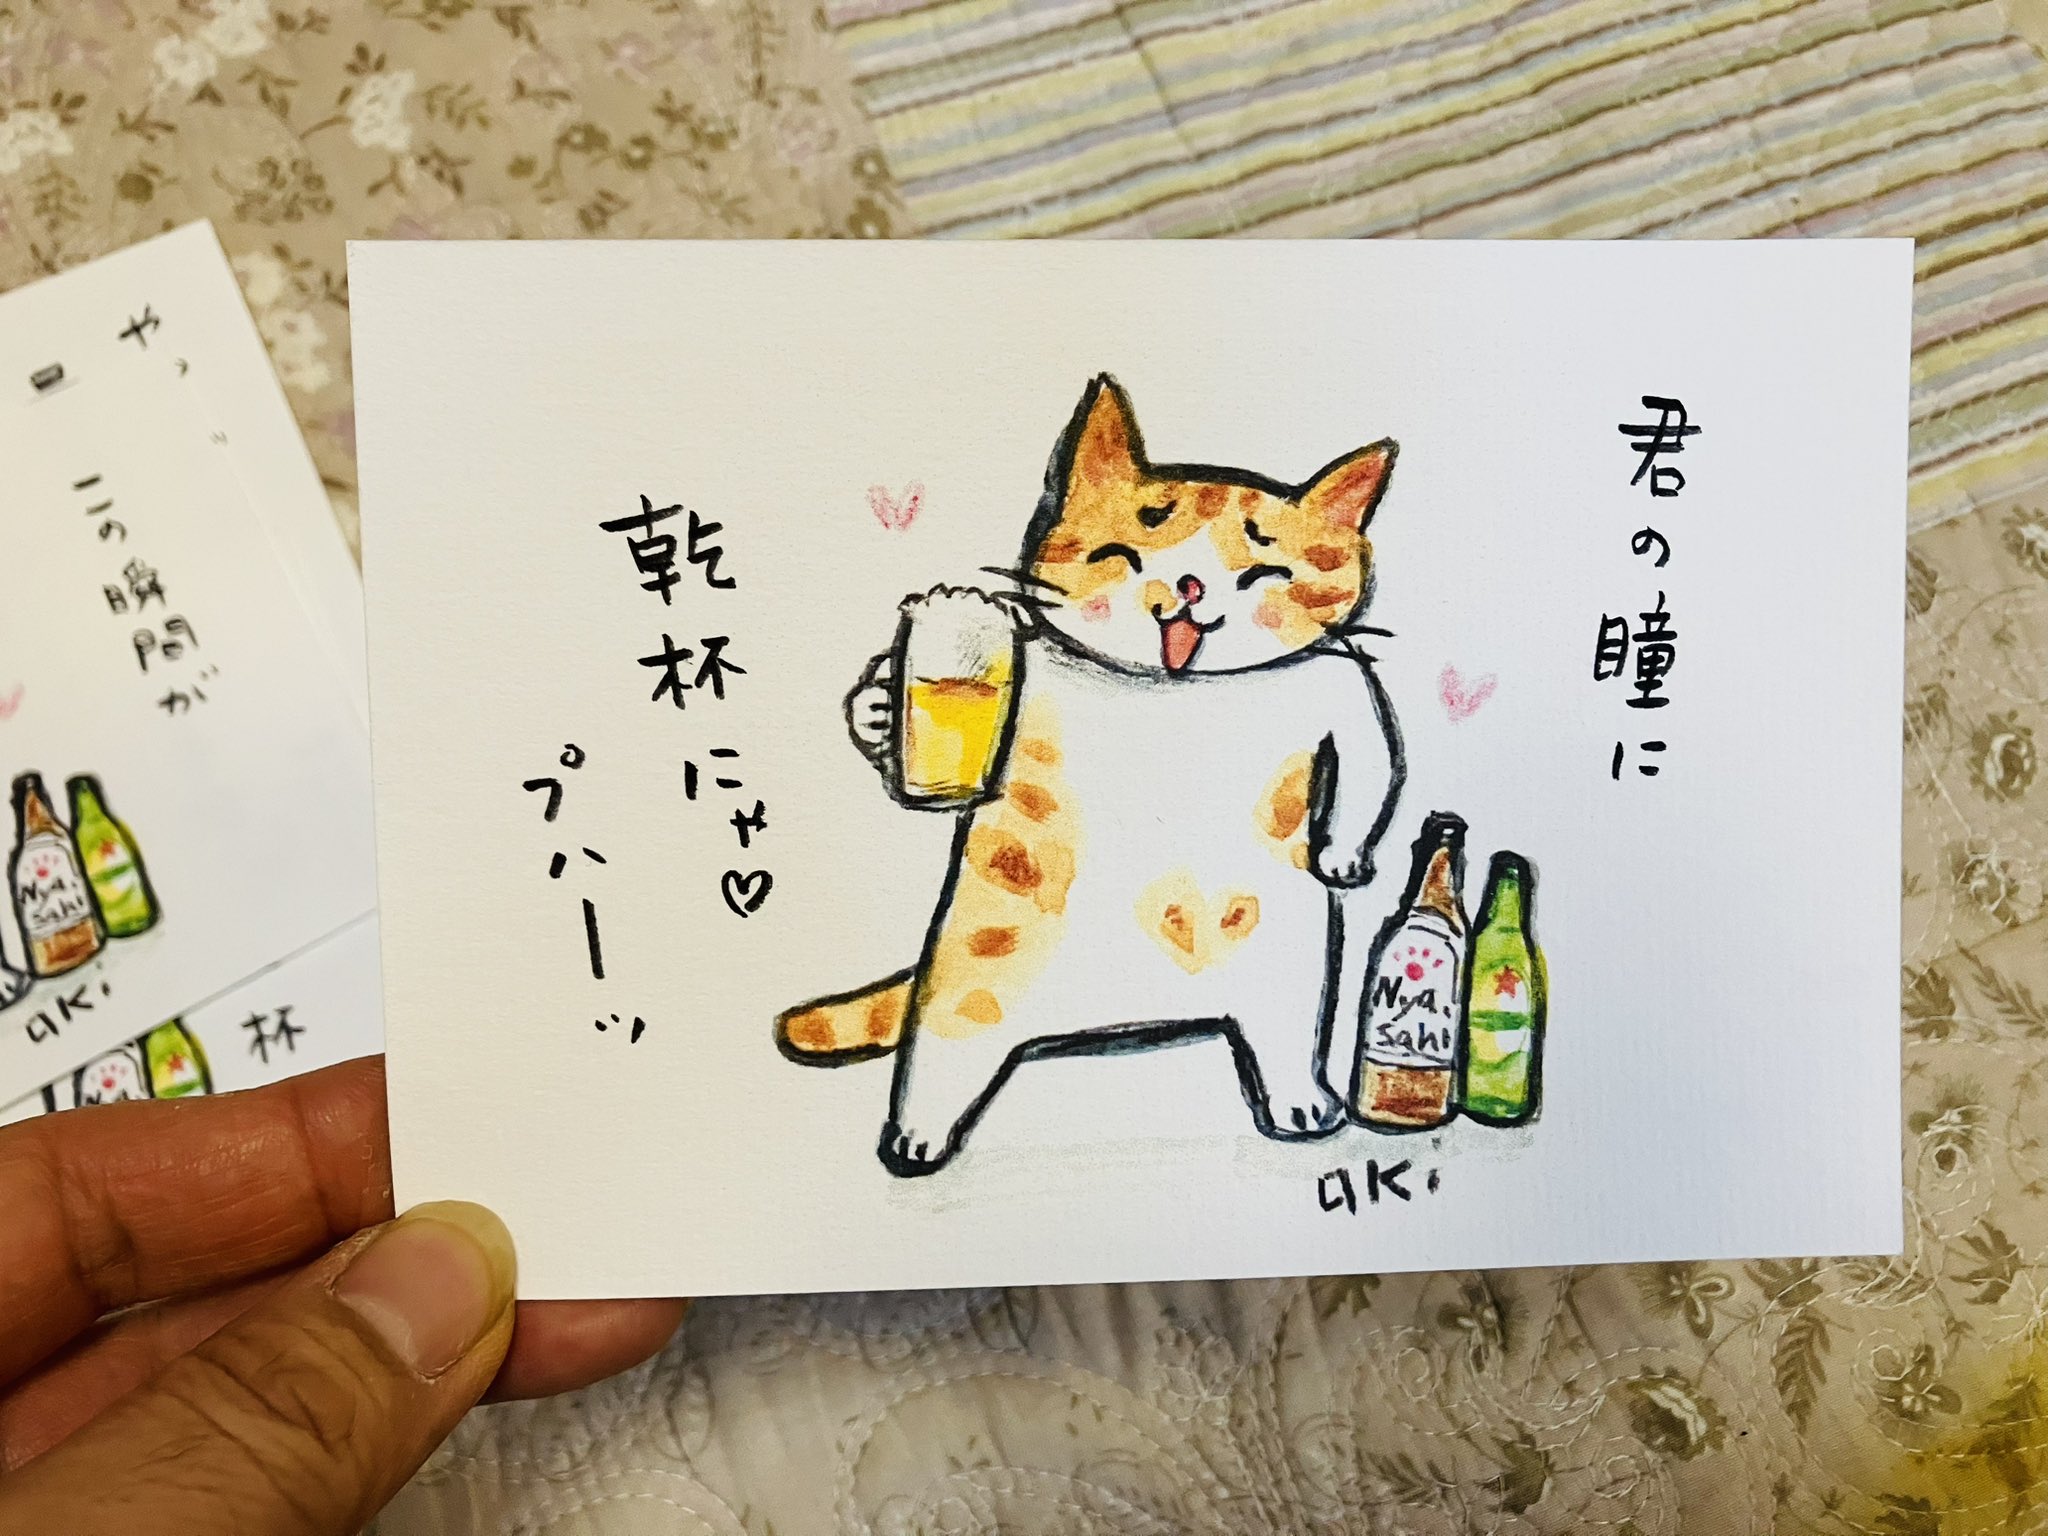 君の瞳に
乾杯にゃ♡
プハーッ
Nya.
Sahi
aki
この瞬間が
Nya.
Sahi
aki
杯